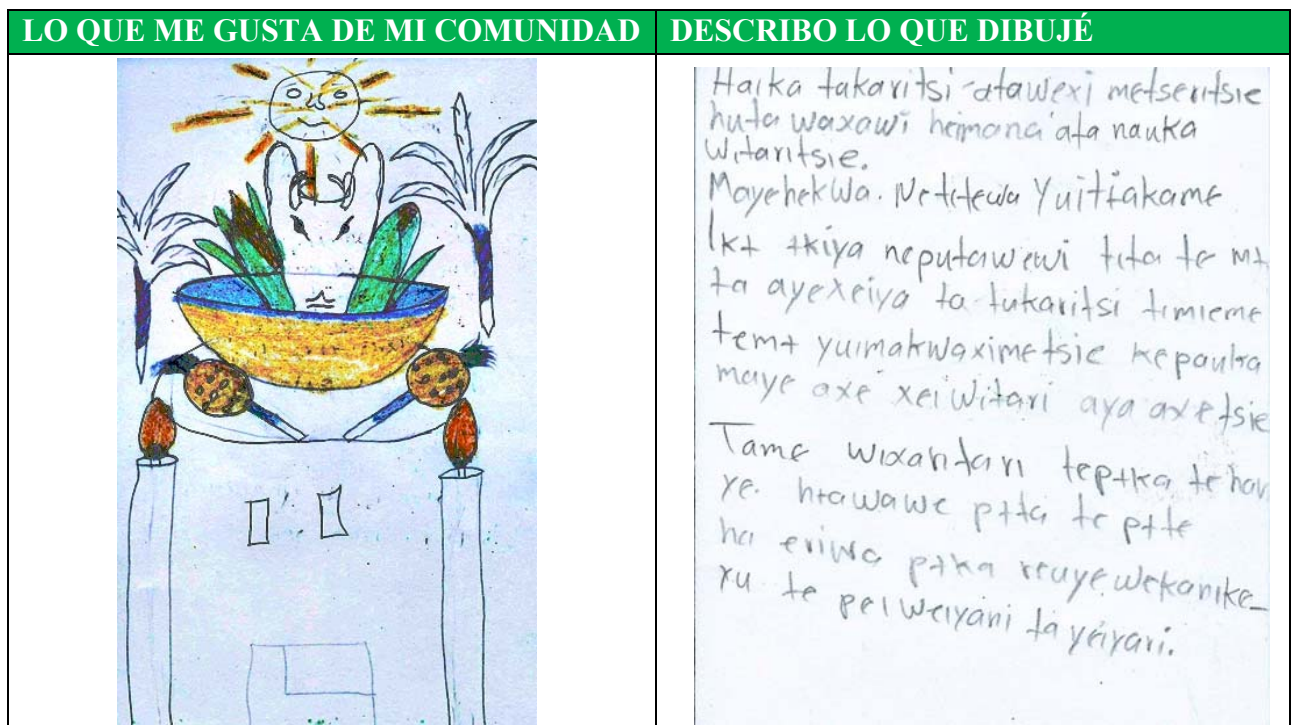 LO QUE ME GUSTA DE MI COMUNIDAD
DESCRIBO LO QUE DIBUJÉ
Haika takaritsi-atawexi metseritsie
huta waxawi heimana ata nauka
witaritsie.
Mayehekwa. Netitewa Yuitiakame
Ikɨ ɨkiya neputawewi tita te mɨ
ta ayexeiya ta tukaritsi timieme
temɨ yuimakwaximetsie kepauka
maye axe xei witari aya axetsie
Tame wixaritari tepɨka te
ye. hɨawawe pɨta te pɨte
ha eriwa pɨka reuyewekanike_
xu te pei weiyani ta yeiyari.